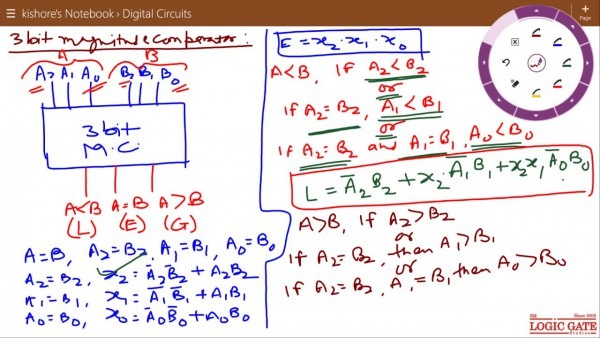 kishore's Notebook › Digital Circuits
Page
3 bit magnitude comparator :
A B
A₂ A₁ A₀ B₂ B₁ B₀
3 bit
M.C
A<B A=B A>B
(L) (E) (G)
A=B, A₂=B₂, A₁=B₁, A₀=B₀
A₂=B₂, x₂ = A̅₂B̅₂ + A₂B₂
A₁=B₁, x₁ = A̅₁B̅₁ + A₁B₁
A₀=B₀, x₀ = A̅₀B̅₀ + A₀B₀
E = x₂·x₁·x₀
A<B, IF A₂<B₂
or
if A₂=B₂, A₁<B₁
or
if A₂=B₂ and A₁=B₁, A₀<B₀
L = A̅₂B₂ + x₂·A̅₁B₁ + x₂x₁A̅₀B₀
A>B, if A₂>B₂
or
if A₂=B₂, then A₁>B₁
or
if A₂=B₂, A₁=B₁ then A₀>B₀
Since 2005
LOGIC GATE